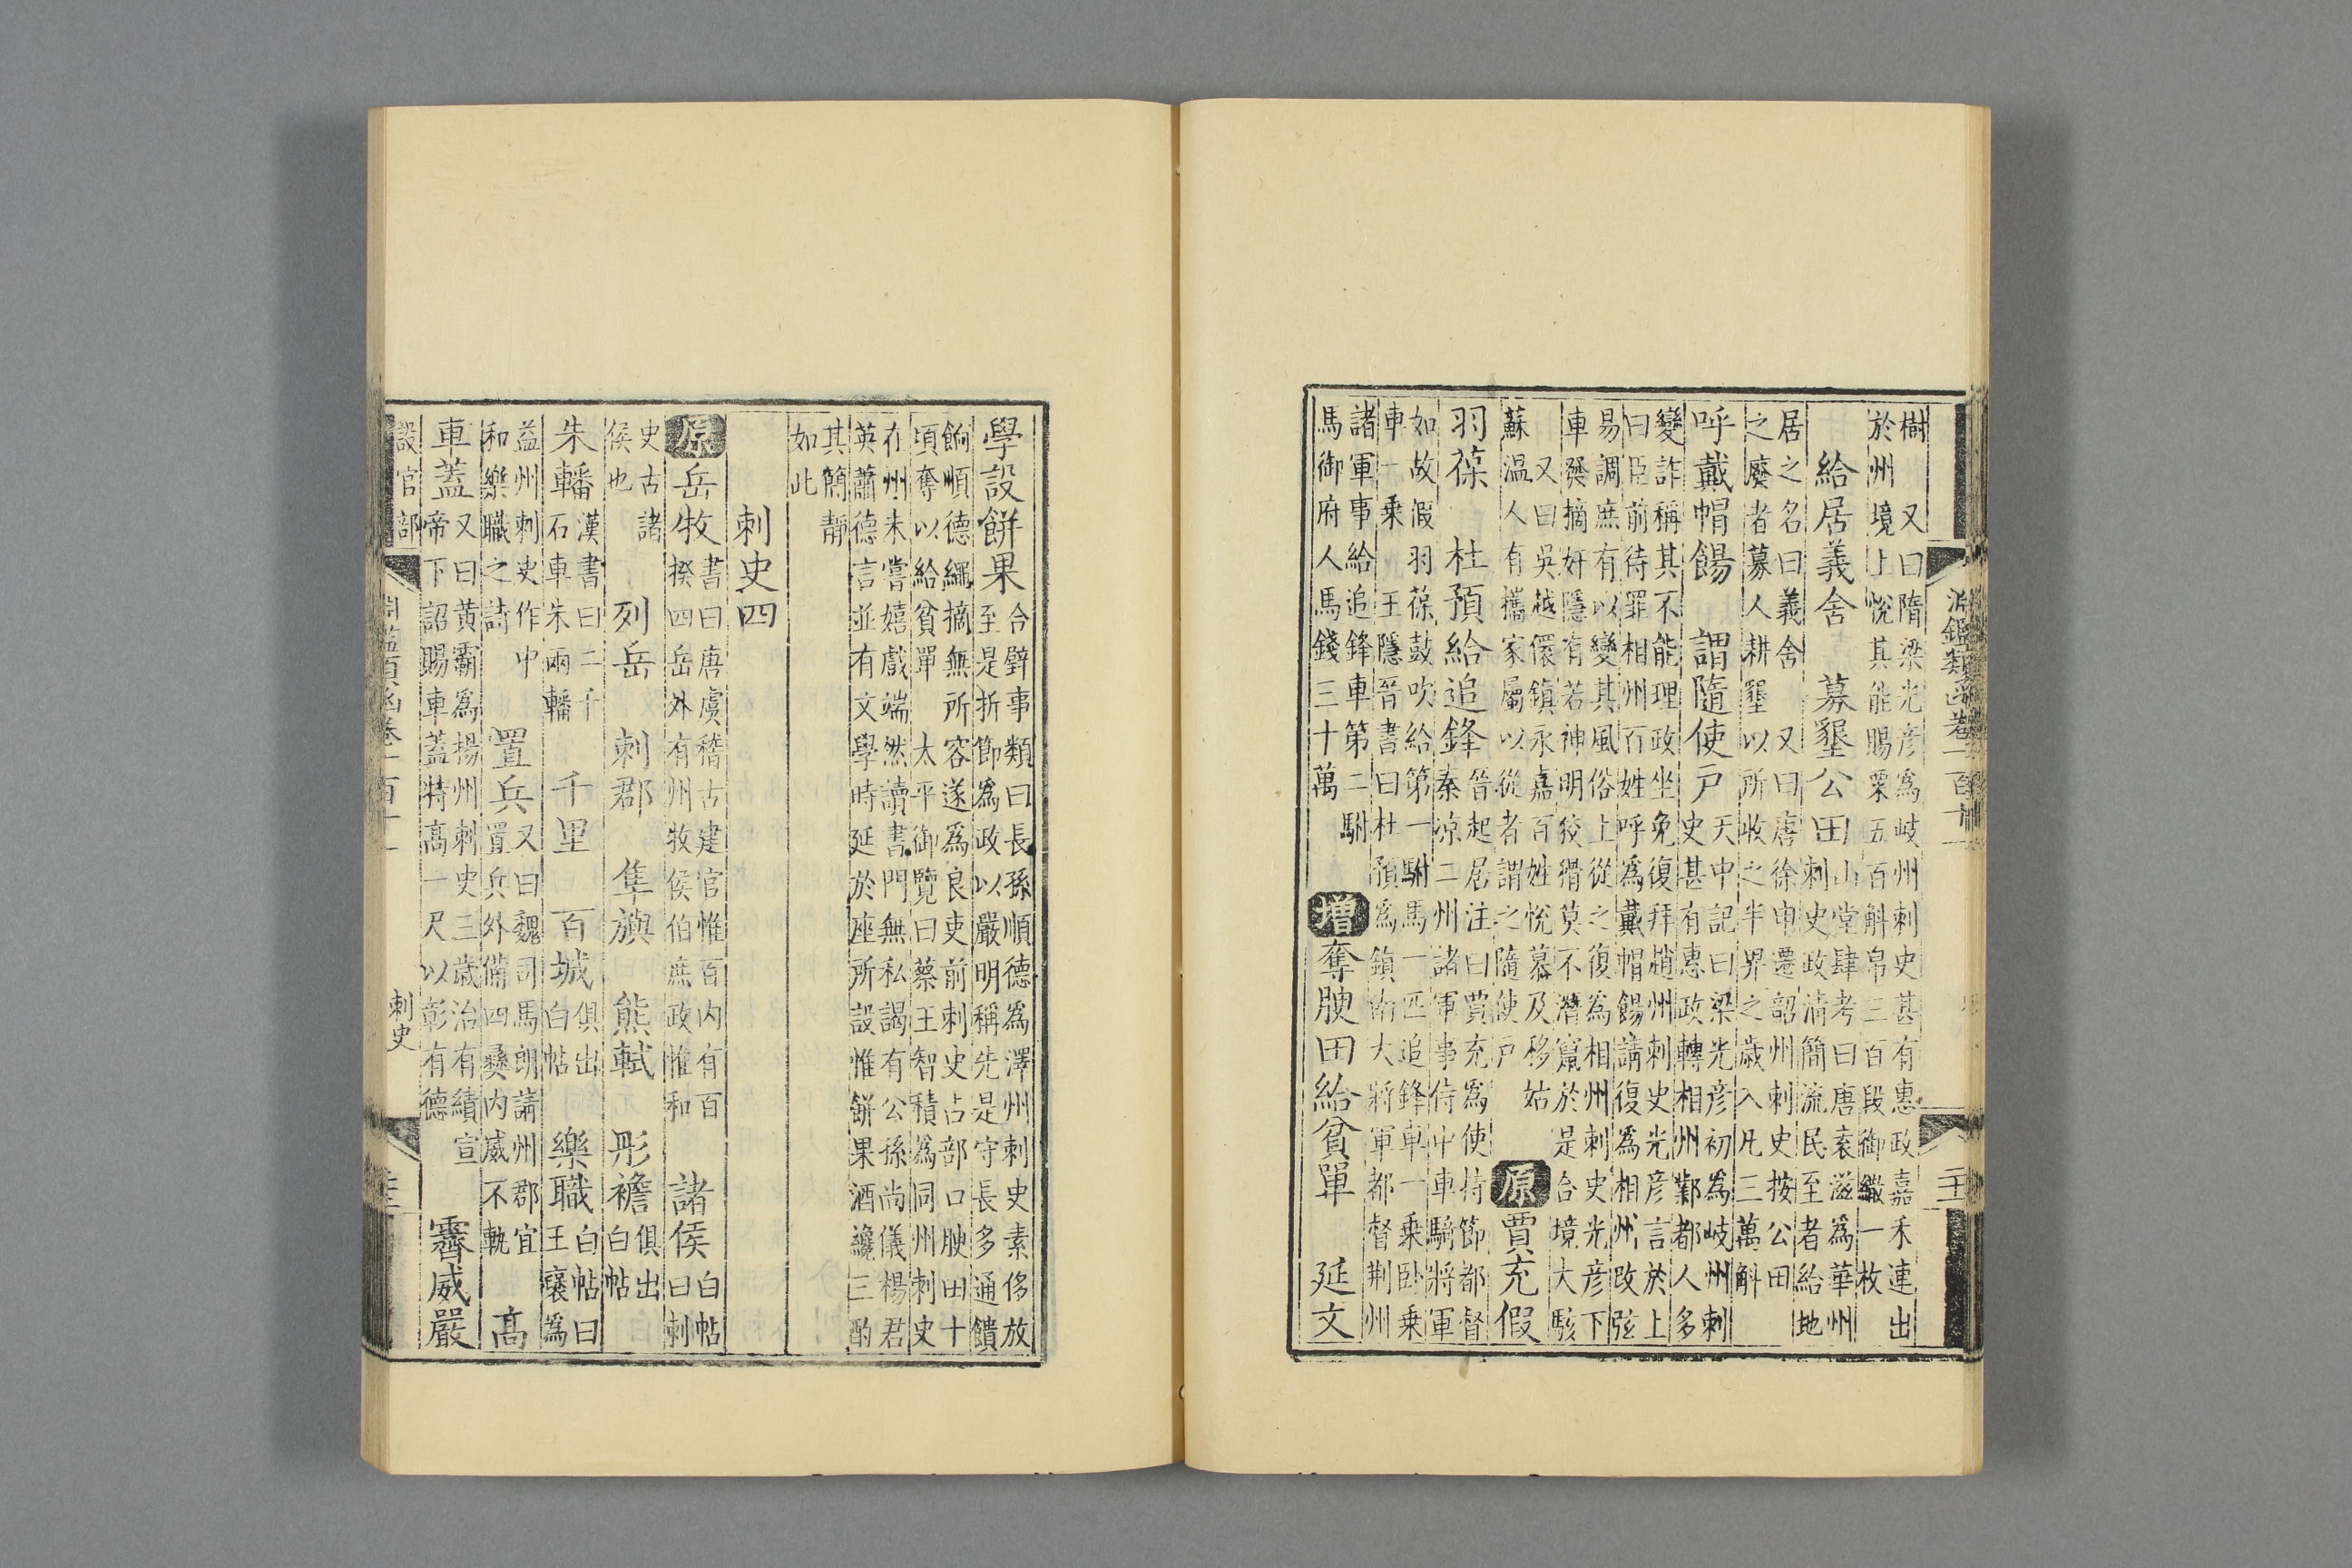 淵鑑類函卷一百十一
樹 又曰隋梁光彥爲岐州刺史甚有惠政嘉禾連出
於州境上悅其能賜粟五百斛帛三百段御繖一枚
給居義舍 募墾公田 山堂肆考曰唐袁滋爲華州刺史政清簡流民至者給地
居之名曰義舍 又曰唐徐申遷韶州刺史按公田
之廢者募人耕墾以所收之半畀之歲入凡三萬斛
呼戴帽餳 謂隨使戶 天中記曰梁光彥初爲岐州刺史甚有惠政轉相州鄴都人多
變詐稱其不能理政坐免復拜趙州刺史光彥言於上
曰臣前待罪相州百姓呼爲戴帽餳請復爲相州改弦
易調庶有以變其風俗上從之復爲相州刺史光彥下
車發摘奸隱有若神明狡猾莫不潛竄於是合境大駭
又曰吳越儇鎮永嘉百姓悅慕及移姑
蘇溫人有攜家屬以從者謂之隨使戶
原 賈充假
羽葆 杜預給追鋒 晉起居注曰賈充爲使持節都督秦凉二州諸軍事侍中車騎將軍
如故假羽葆鼓吹給第一駙馬一匹追鋒車一乘卧乗
車一乘 王隱晉書曰杜預爲鎮南大將軍都督荆州
諸軍事給追鋒車第二駙
馬御府人馬錢三十萬
增 奪腴田給貧單 延文
學設餅果 合璧事類曰長孫順德爲澤州刺史素侈放至是折節爲政以嚴明稱先是守長多通饋
餉順德繩摘無所容遂爲良吏前刺史占部口腴田十
頃奪以給貧單 太平御覽曰蔡王智積爲同州刺史
在州未嘗嬉戲端然讀書門無私謁有公孫尚儀楊君
英蕭德言並有文學時延於座所設惟餅果酒纔三酌
其簡靜
如此
刺史四
原 岳牧 書曰唐虞稽古建官惟百内有百揆四岳外有州牧侯伯庶政惟和 諸侯 白帖曰刺
史古諸
侯也
列岳 刺郡 隼旟 熊軾 彤襜 俱出白帖
朱轓 漢書曰二千石車朱兩轓 千里 百城 俱出白帖 樂職 白帖曰王襄爲
益州刺史作中
和樂職之詩
置兵 又曰魏司馬朗請州郡宜置兵外備四彝内威不軌 高
車蓋 又曰黃霸爲揚州刺史三歲治有績宣帝下詔賜車蓋特高一尺以彰有德 霽威嚴
設官部
淵鑑類函卷一百十一
刺史